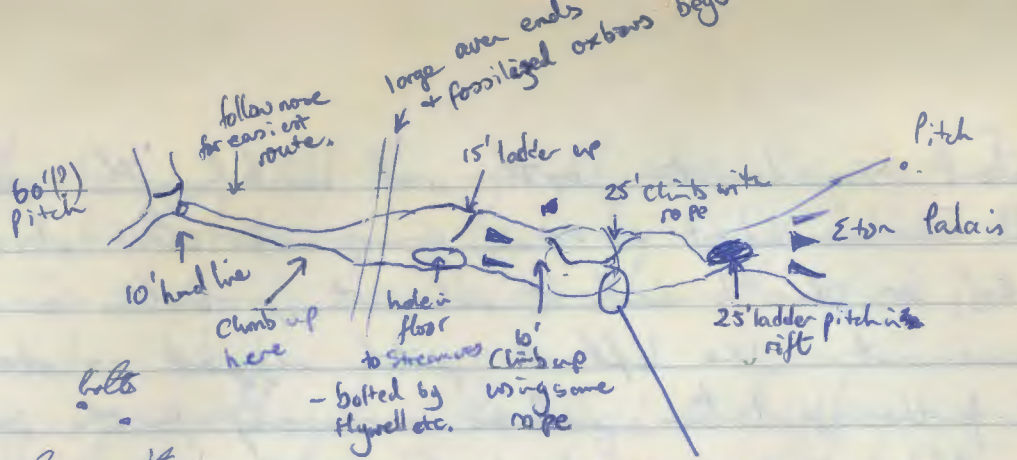 large aven ends
+ fossilized oxbows
follow nose
for easiest
route.
15' ladder up
25' climb with
rope
Pitch
60'(?)
Pitch
Eton Palais
10' hand line
Climb up
here
hole in
floor
to Streamway
- bolted by
flywell etc.
10'
Climb up
using same
rope
25' ladder pitch in
rift
bolts